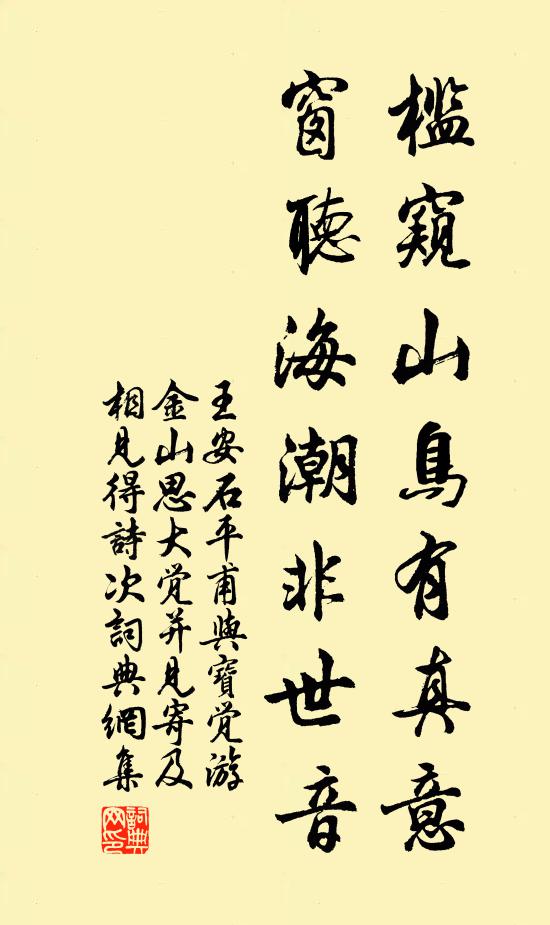 檻窺山鳥有真意
窗聽海潮非世音
王安石平甫與寶覚游
金山思大覚并見寄及
相見得詩次詞典網集
詞典
网印